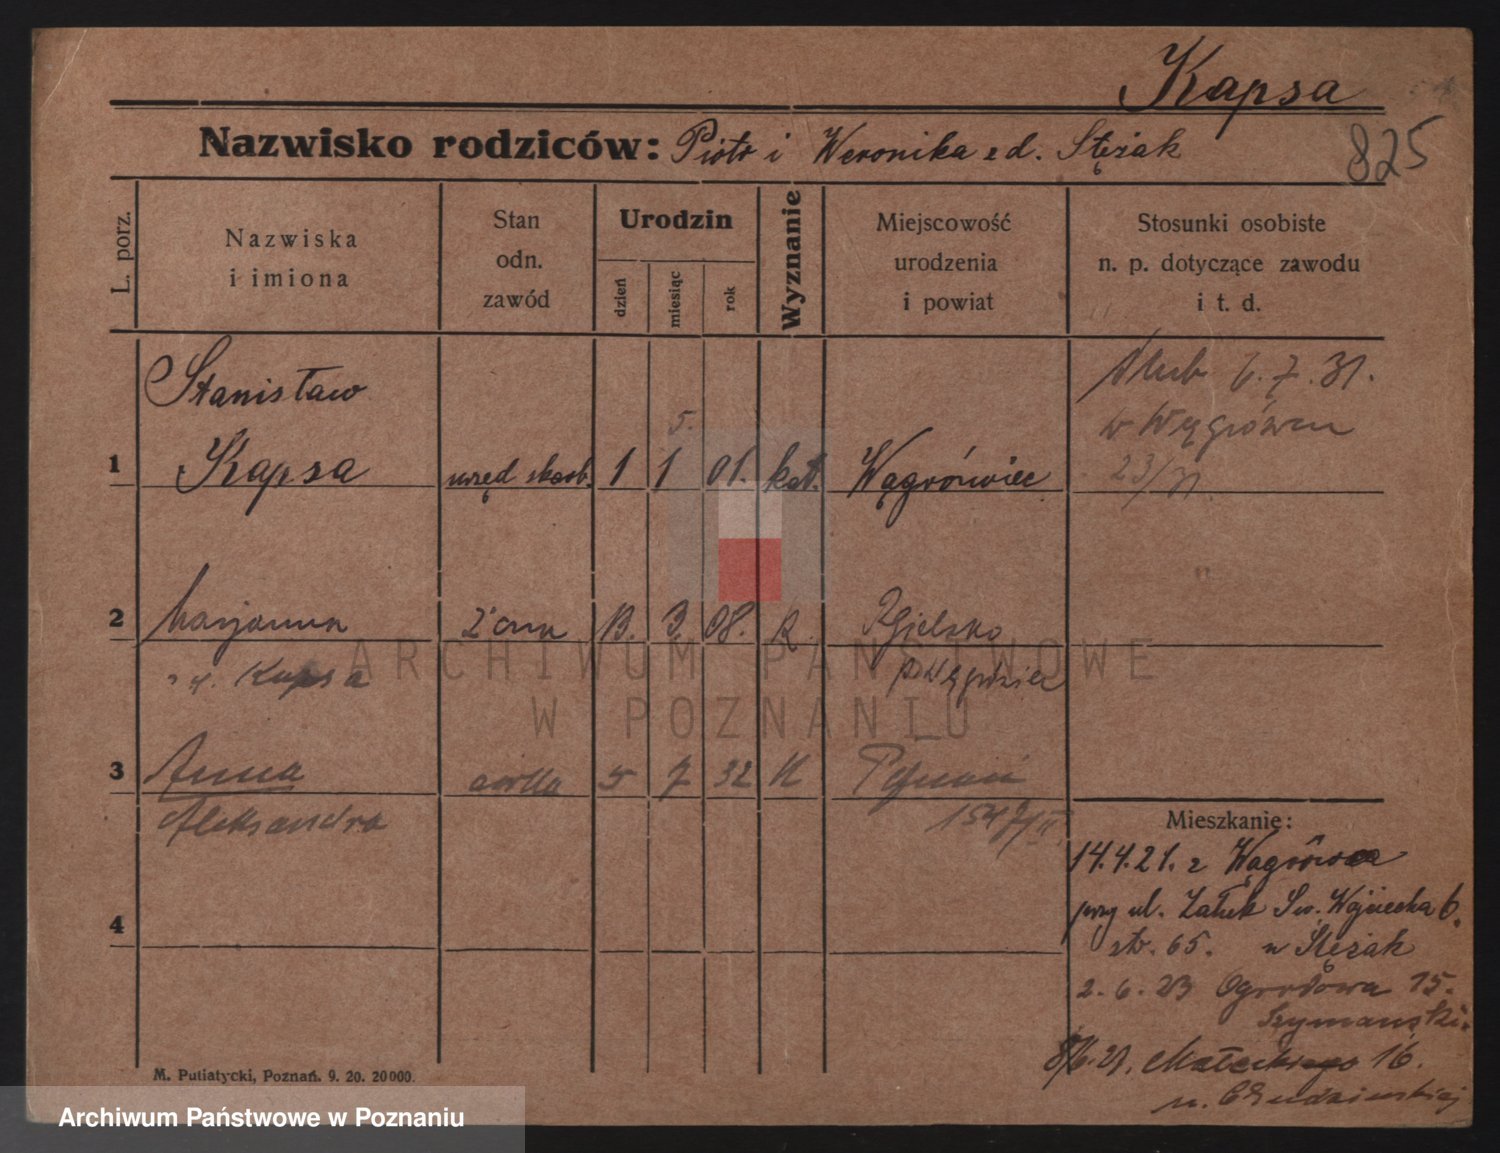 Kapsa
Nazwisko rodziców: Piotr i Weronika z d. Stężak
825
L. porz.
Nazwiska
i imiona
Stan
odn.
zawód
Urodzin
dzień
miesiąc
rok
Wyznanie
Miejscowość
urodzenia
i powiat
Stosunki osobiste
n. p. dotyczące zawodu
i t. d.
Stanisław
1 Kapsa urzęd skarb. 1 1 01. kat. Wągrówiec
5.
ślub 6.7.31.
w Wągrówcu
23/31
2 Marjanna żona 13. 3. 08. R.
Kapsa
3 Anna córka 5 7 32 K Poznań
Aleksandra
4
Mieszkanie:
14.4.21. z Wągrówca
przy ul. Zaułek Św. Wojciecha 6.
str. 65. u Stężak
2.6.23 Ogrodowa 15.
Szymański.
Małeckiego 16.
u.
M. Putiatycki, Poznań. 9. 20. 20000.
ARCHIWUM PAŃSTWOWE
W POZNANIU
Archiwum Państwowe w Poznaniu